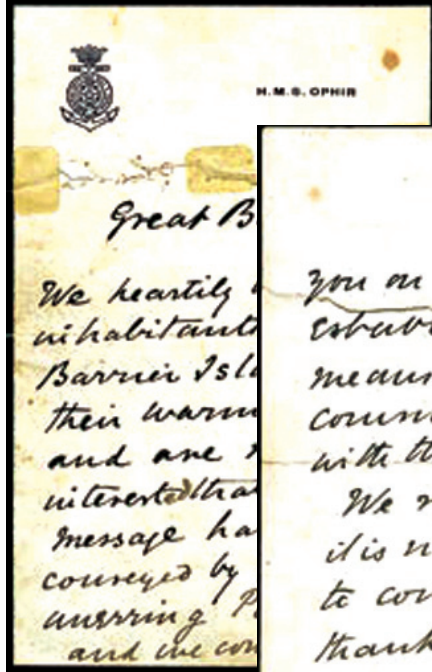 H.M.S. OPHIR
Great B
We heartily
inhabitants
Barrier Isl
their warm
and are
interested that
message ha
conveyed by
unerring P
and we con
you on
Estab
means
comm
with th
We r
it is n
to con
thank